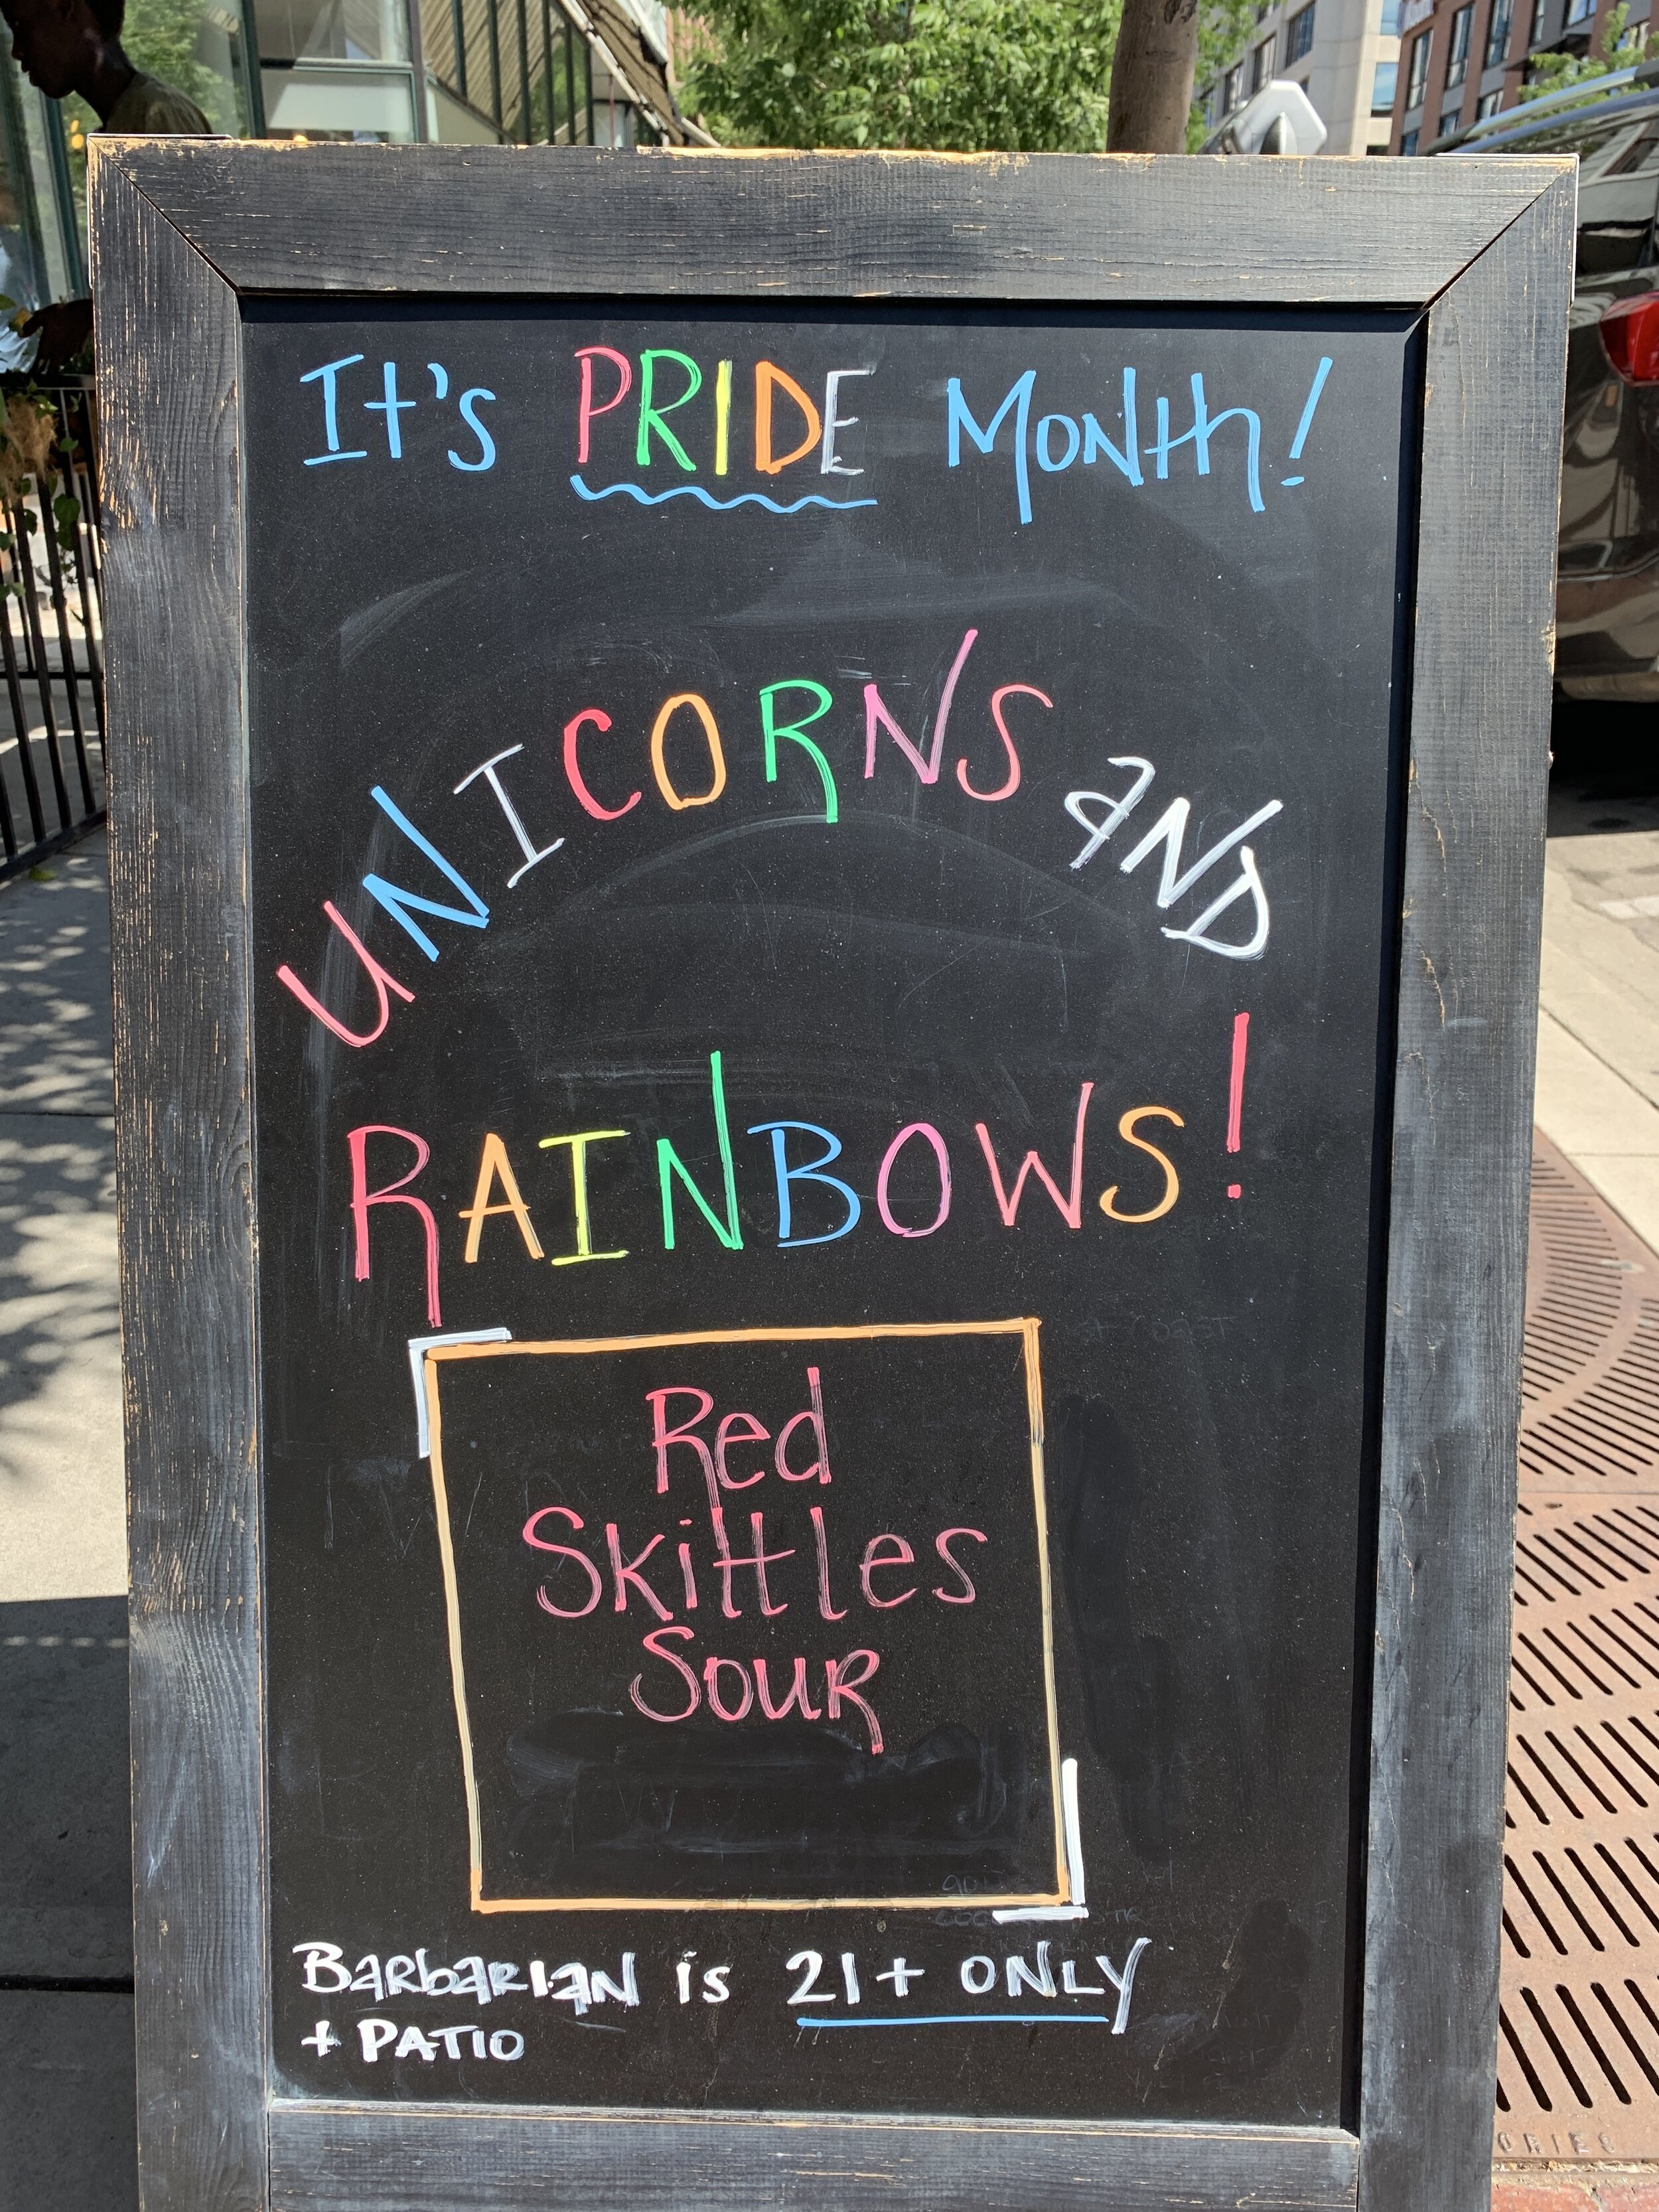 It's PRIDE Month!
UNICORNS AND
RAINBOWS!
Red
Skittles
Sour
Barbarian is 21+ ONLY
+ PATIO